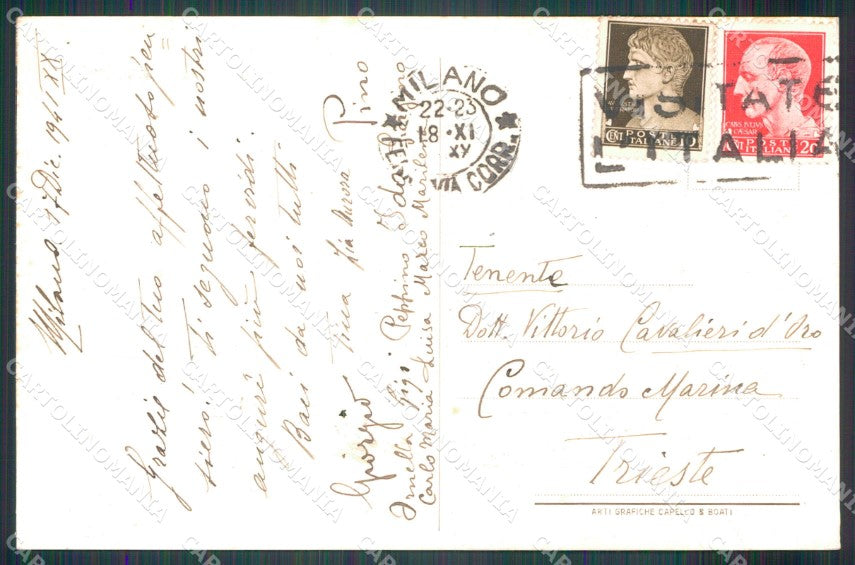 Milano 17 Dic. 1941 XX.
Grazie del tuo affettuoso pen
siero! Ti seguono i nostri
auguri più fervidi.
Baci da noi tutti
tua zia Aurora Pino
Giorgio
Ornella Gigi Peppino Ida
Carlo Maria Luisa Marco Marilena
MILANO
22-23
18·XI
XX
VIA CORR.
VISITATE
L'ITALIA
POSTE
ITALIANE
CENT 10
CAIVS IVLIVS
CAESAR
POSTE
ITALIANE
CENT 20
Tenente
Dott. Vittorio Cavalieri d'Oro
Comando Marina
Trieste
ARTI GRAFICHE CAPELLO & BOATI
CARTOLINOMANIA